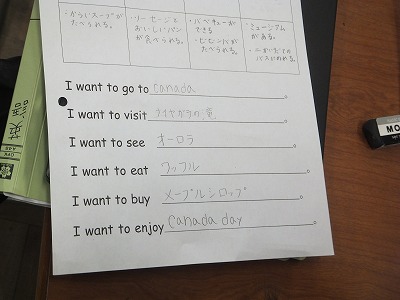 ・からいスープが
たべられる。
・ソーセージと
おいしいパン
が食べられる。
・バーベキューが
できる
・ビビンバが
たべられる。
・ミュージアム
がある。
・二かいだての
バスにのれる。
I want to go to canada。
I want to visit ナイヤガラの竜。
I want to see オーロラ。
I want to eat ワッフル。
I want to buy メープルシロップ。
I want to enjoy canada day。
MO